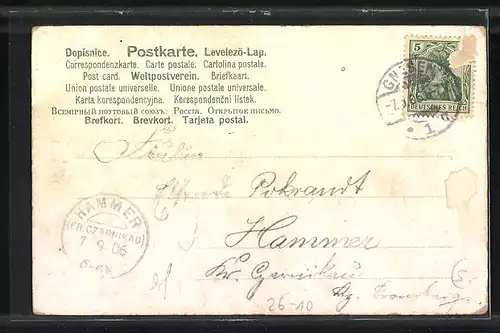 Dopisnice. Postkarte. Levelező-Lap.
Correspondenzkarte. Carte postale. Cartolina postale.
Post card. Weltpostverein. Briefkaart.
Union postale universelle. Unione postale universale.
Karta korespondencyjna. Korespondenční lístek.
Всемірный почтовый союзъ. Россія. Открытое письмо.
Brefkort. Brevkort. Tarjeta postal.
5
DEUTSCHES REICH
1
Fräulein
Pokrandt
Hammer
Kr. Czarnikau
Bz. Bromberg
HAMMER
(KR. CZARNIKAU)
7.9.05
26-10